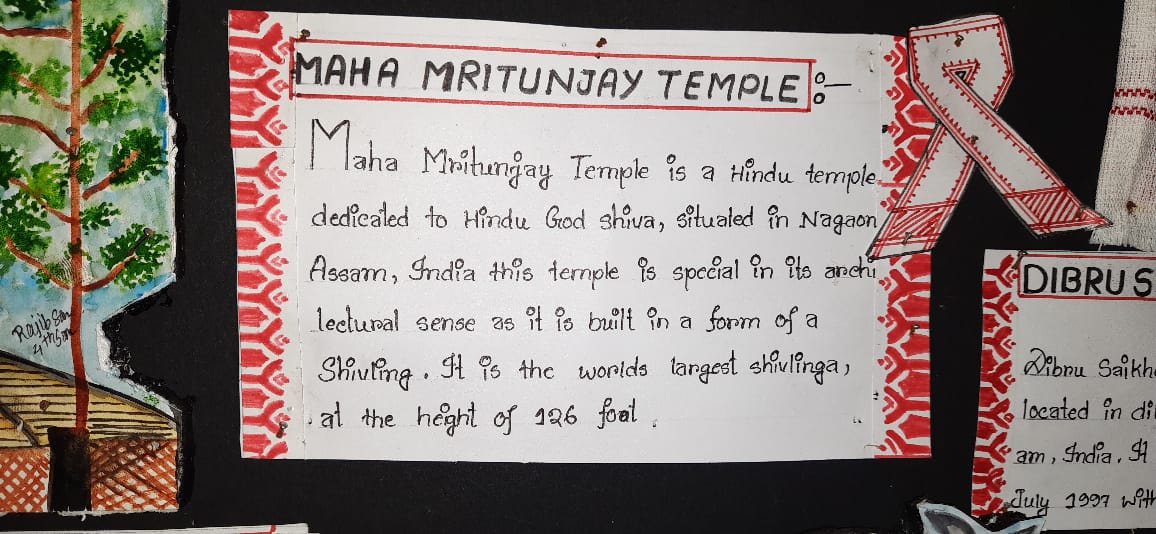 MAHA MRITUNJAY TEMPLE :-
Maha Mritunjay Temple is a Hindu temple
dedicated to Hindu God shiva, situated in Nagaon
Assam, India this temple is special in its archi
tectural sense as it is built in a form of a
Shivling. It is the worlds largest shivlinga,
at the height of 126 foot.
DIBRU S
Dibru Saikh
located in di
am, India. It
July 1997 with
Rajib
4th Sem